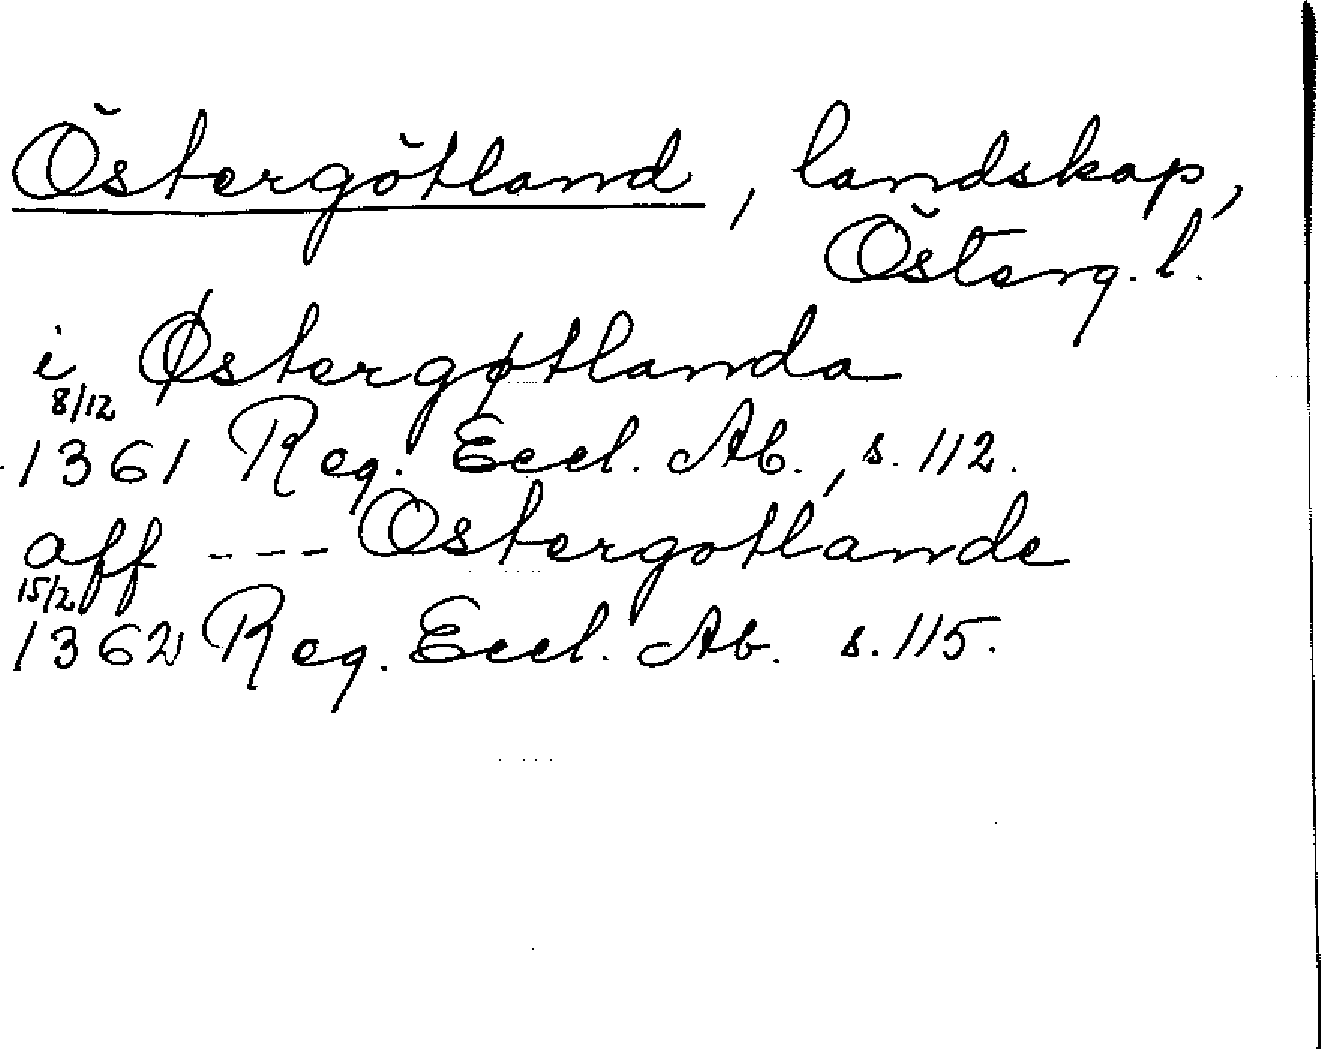 Östergötland, landskap,
Österg. l.
i Østergøtlanda
8/12
1361 Reg. Eccl. Ab., s. 112.
aff --- Ostergotlande
15/2
1362 Reg. Eccl. Ab. s. 115.